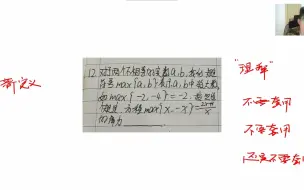 新定义
12. 对于两个不相等的实数a、b,我们规定
符号max{a,b}表示a、b中的较大数,
如max{-2,-4}=-2,按照这个
规定,方程max{x,-x}=
的解为
"理解"
不要套用
不要套用
还是不要套用